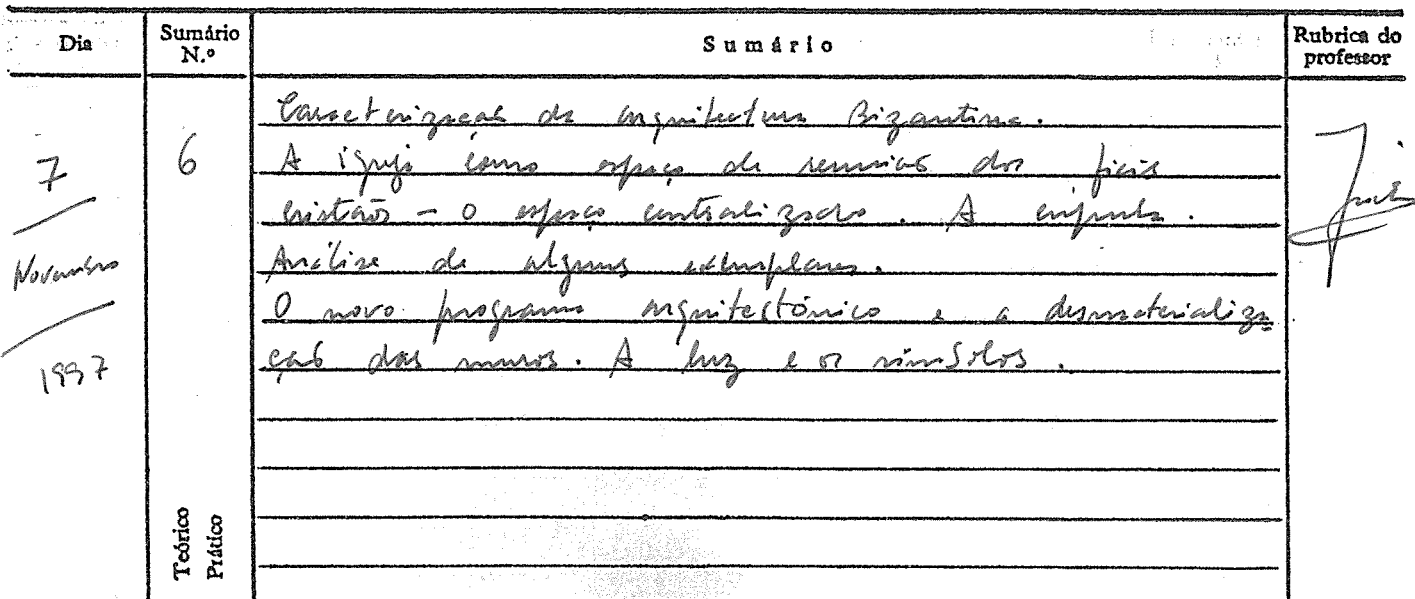 Dia
Sumário N.º
Sumário
Rubrica do professor
7
Novembro
1997
6
Caracterização da arquitectura Bizantina.
A igreja como espaço de reunião dos fieis
cristãos - o espaço centralizado. A cúpula.
Análise de alguns exemplares.
O novo programa arquitectónico e a desmaterializa
ção dos muros. A luz e os símbolos.
Teórico
Prático